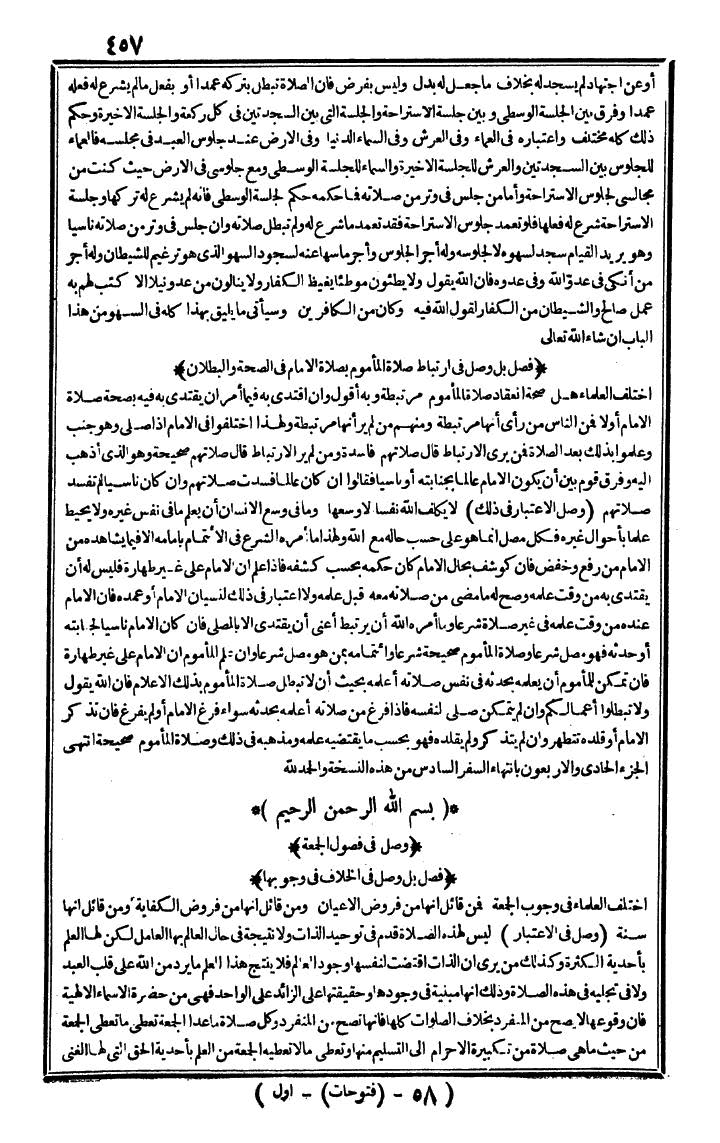 ٤٥٧
أو عن اجتهاد لم يسجد له بخلاف ما جعل له بدل وليس بفرض فان الصلاة تبطل بتركه عمدا أو بفعل ما لم يشرع له فعله
عمدا وفرق بين الجلسة الوسطى وبين جلسة الاستراحة والجلسة التي بين السجدتين في كل ركعة والجلسة الاخيرة وحكم
ذلك كله مختلف واعتباره في العماء وفي العرش وفي السماء الدنيا وفي الارض عند جلوس العبد في مجلسه فالعماء
للجلوس بين السجدتين والعرش للجلسة الاخيرة والسماء للجلسة الوسطى ومع جلوسي في الارض حيث كنت من
مجالسي لجلوس الاستراحة وأما من جلس في وتر من صلاته فما حكمه حكم لجلسة الوسطى فانه لم يشرع له تركها وجلسة
الاستراحة شرع له فعلها فلو تعمد جلوس الاستراحة فقد تعمد ما شرع له ولم تبطل صلاته وان جلس في وتر من صلاته ناسيا
وهو يريد القيام سجد لسهوه لا لجلوسه وله أجر الجلوس وأجر ما سها عنه لسجود السهو الذي هو ترغيم للشيطان وله أجر
من أنكى في عدو الله وفي عدوه فان الله يقول ولا يطئون موطئا يغيظ الكفار ولا ينالون من عدو نيلا الا كتب لهم به
عمل صالح والشيطان من الكفار لقول الله فيه وكان من الكافرين وسيأتي ما يليق بهذا كله في السهو من هذا
الباب ان شاء الله تعالى
﴿فصل بل وصل في ارتباط صلاة المأموم بصلاة الامام في الصحة والبطلان﴾
اختلف العلماء هل صحة انعقاد صلاة المأموم مرتبطة وبه أقول وان اقتدى به فيما أمر ان يقتدى به فيه بصحة صلاة
الامام أولا فمن الناس من رأى أنها مرتبطة ومنهم من لم ير أنها مرتبطة ولهذا اختلفوا في الامام اذا صلى وهو جنب
وعلموا بذلك بعد الصلاة فمن يرى الارتباط قال صلاتهم فاسدة ومن لم ير الارتباط قال صلاتهم صحيحة وهو الذي أذهب
اليه وفرق قوم بين أن يكون الامام عالما بجنابته أو ناسيا فقالوا ان كان عالما فسدت صلاتهم وان كان ناسيا لم تفسد
صلاتهم (وصل الاعتبار في ذلك) لا يكلف الله نفسا لا وسعها وما في وسع الانسان أن يعلم ما في نفس غيره ولا يحيط
علما بأحوال غيره فكل مصل انما هو على حسب حاله مع الله ولهذا ما أمره الشرع في الائتمام بامامه الا فيما يشاهده من
الامام من رفع وخفض فان كوشف بحال الامام كان حكمه بحسب كشفه فاذا علم ان الامام على غير طهارة فليس له أن
يقتدى به من وقت علمه وصح له ما مضى من صلاته معه قبل علمه ولا اعتبار في ذلك لنسيان الامام أو عمده فان الامام
عنده من وقت علمه في غير صلاة شرعا وما أمره الله أن يرتبط أعني أن يقتدى الا بالمصلي فان كان الامام ناسيا لجنابته
أو حدثه فهو مصل شرعا وصلاة المأموم صحيحة شرعا وائتمامه بمن هو مصل شرعا وان علم المأموم ان الامام على غير طهارة
فان تمكن للمأموم أن يعلمه بحدثه في نفس صلاته أعلمه بحيث أن لا تبطل صلاة المأموم بذلك الاعلام فان الله يقول
ولا تبطلوا أعمالكم وان لم يتمكن صلى لنفسه فاذا فرغ من صلاته أعلمه بحدثه سواء فرغ الامام أو لم يفرغ فان تذكر
الامام أو قلده تتطهر وان لم يتذكر ولم يقلده فهو بحسب ما يقتضيه علمه ومذهبه في ذلك وصلاة المأموم صحيحة انتهى
الجزء الحادى والاربعون بانتهاء السفر السادس من هذه النسخة والحمد لله
*( بسم الله الرحمن الرحيم )*
﴿وصل في فصول الجمعة﴾
﴿فصل بل وصل في الخلاف في وجوبها﴾
اختلف العلماء في وجوب الجمعة فمن قائل انها من فروض الاعيان ومن قائل انها من فروض الكفاية ومن قائل انها
سنة (وصل في الاعتبار) ليس لهذه الصلاة قدم في توحيد الذات ولا نتيجة في حال العالم بها العامل لكن لها العلم
بأحدية الكثرة وكذلك من يرى ان الذات اقتضت لنفسها وجود العالم فلا ينتج هذا العلم ما يرد من الله على قلب العبد
ولا في تجليه في هذه الصلاة وذلك انها مبنية في وجودها وحقيقتها على الزائد على الواحد فهي من حضرة الاسماء الالهية
فان وقوعها لا يصح من المنفرد بخلاف الصلوات كلها فانها تصح من المنفرد وكل صلاة ما عدا الجمعة تعطى ما تعطى الجمعة
من حيث ما هي صلاة من تكبيرة الاحرام الى التسليم منها وتعطى ما لا تعطيه الجمعة من العلم بأحدية الحق التي لها الغنى
( ٥٨ - (فتوحات) - اول )